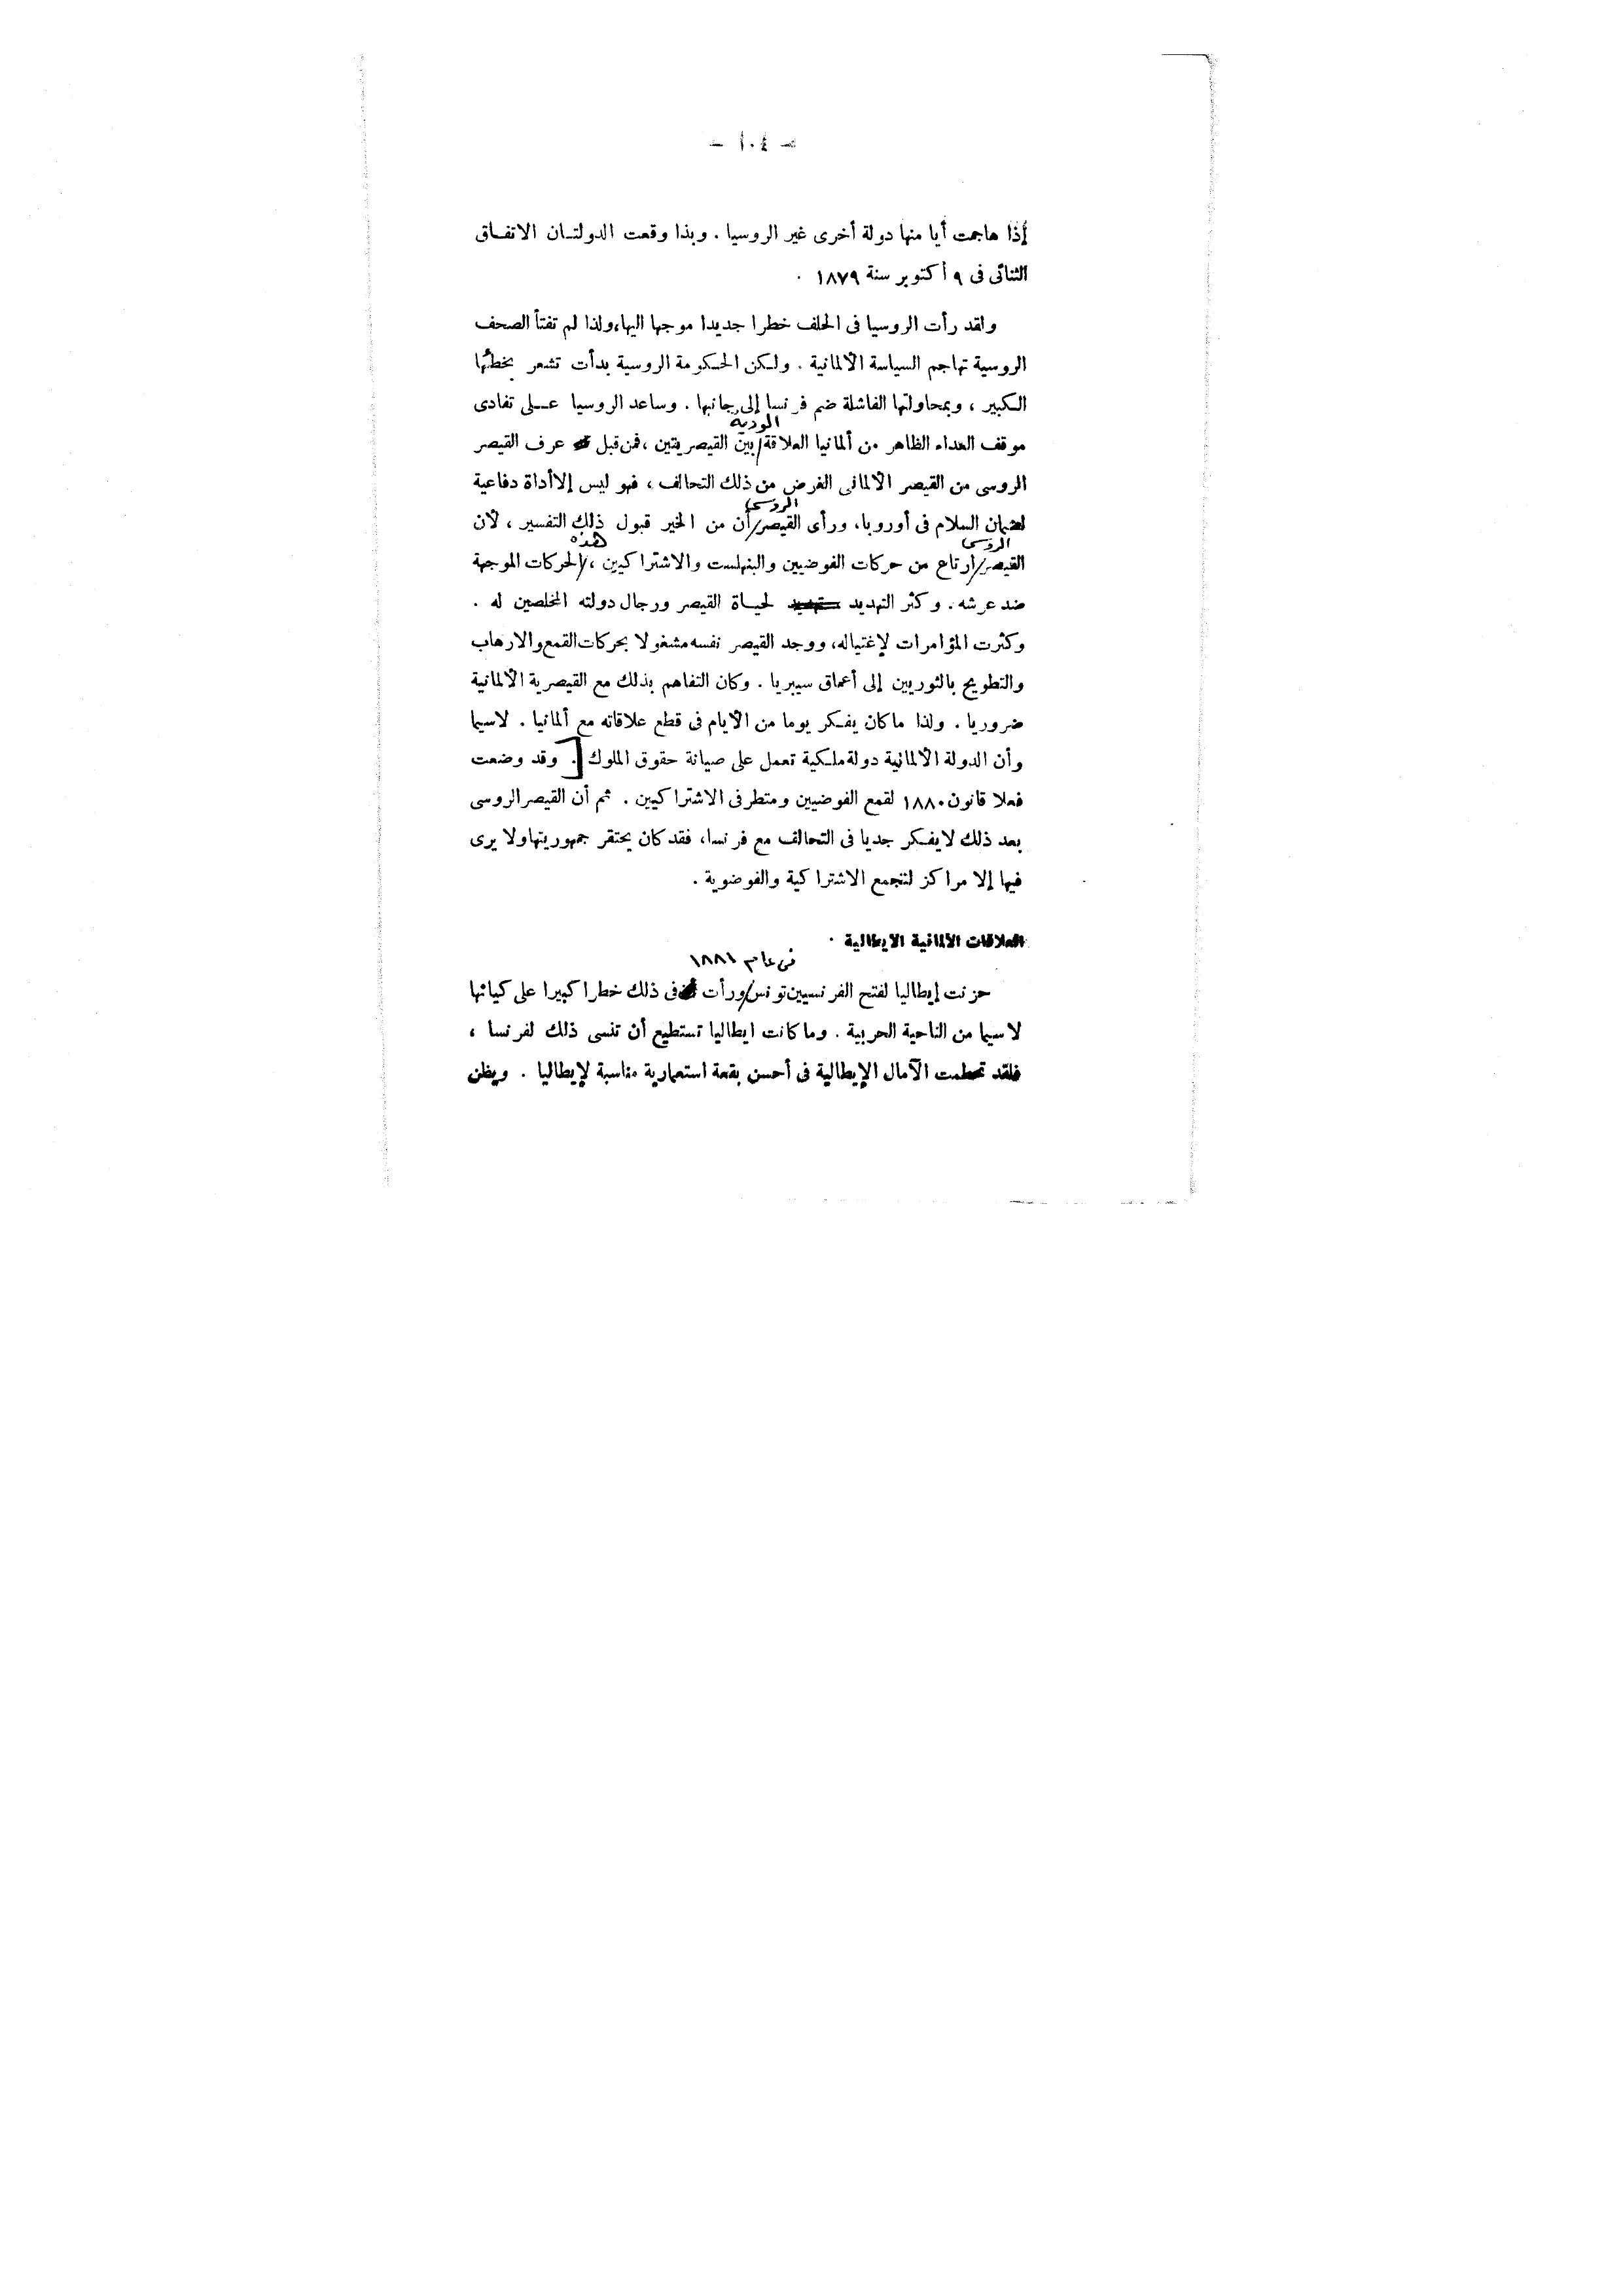 - ١٠٤ -
إذا هاجمت أيا منها دولة أخرى غير الروسيا . وبذا وقعت الدولتـان الاتفـاق
الثنائى فى ٩ أكتوبر سنة ١٨٧٩ .
ولقد رأت الروسيا فى الحلف خطرا جديدا موجها اليها،ولذا لم تفتأ الصحف
الروسية تهاجم السياسة الألمانية . ولـكن الحـكومة الروسية بدأت تشعر بخطئها
الـكبير ، وبمحاولتها الفاشلة ضم فرنسا إلى جانبها . وساعد الروسيا عـلى تفادى
الودية
موقف العداء الظاهر من ألمانيا العلاقة/بين القيصريتين ،فمن قبل عرف القيصر
الروسى من القيصر الألمانى الغرض من ذلك التحالف ، فهو ليس إلا أداة دفاعية
الروسى
لضمان السلام فى أوروبا، ورأى القيصر/أن من الخير قبول ذلك التفسير ، لأن
الروسى هذه
القيصر/ارتاع من حركات الفوضيين والبنهلست والاشتراكيين ،/الحركات الموجهة
ضد عرشه . وكثر التهديد لحيـاة القيصر ورجال دولته المخلصين له .
وكثرت المؤامرات لإغتياله، ووجد القيصر نفسه مشغولا بحركات القمع والارهاب
والتطويح بالثوريين إلى أعماق سيبريا . وكان التفاهم بذلك مع القيصرية الألمانية
ضروريا . ولذا ماكان يفـكر يوما من الأيام فى قطع علاقاته مع ألمانيا . لاسيما
وأن الدولة الألمانية دولة ملـكية تعمل على صيانة حقوق الملوك [. وقد وضعت
فعلا قانون ١٨٨٠ لقمع الفوضيين ومتطرفى الاشتراكيين . ثم أن القيصر الروسى
بعد ذلك لايفـكر جديا فى التحالف مع فرنسا، فقد كان يحتقر جمهوريتها ولا يرى
فيها إلا مراكز لتجمع الاشتراكية والفوضوية .
العلاقات الألمانية الايطالية .
فى عام ١٨٨١
حزنت إيطاليا لفتح الفرنسيين تونس/ورأت فى ذلك خطرا كبيرا على كيانها
لاسيما من الناحية الحربية . وماكانت ايطاليا تستطيع أن تنسى ذلك لفرنسا ،
فلقد تحطمت الآمال الإيطالية فى أحسن بقعة استعمارية مناسبة لإيطاليا . ويظن